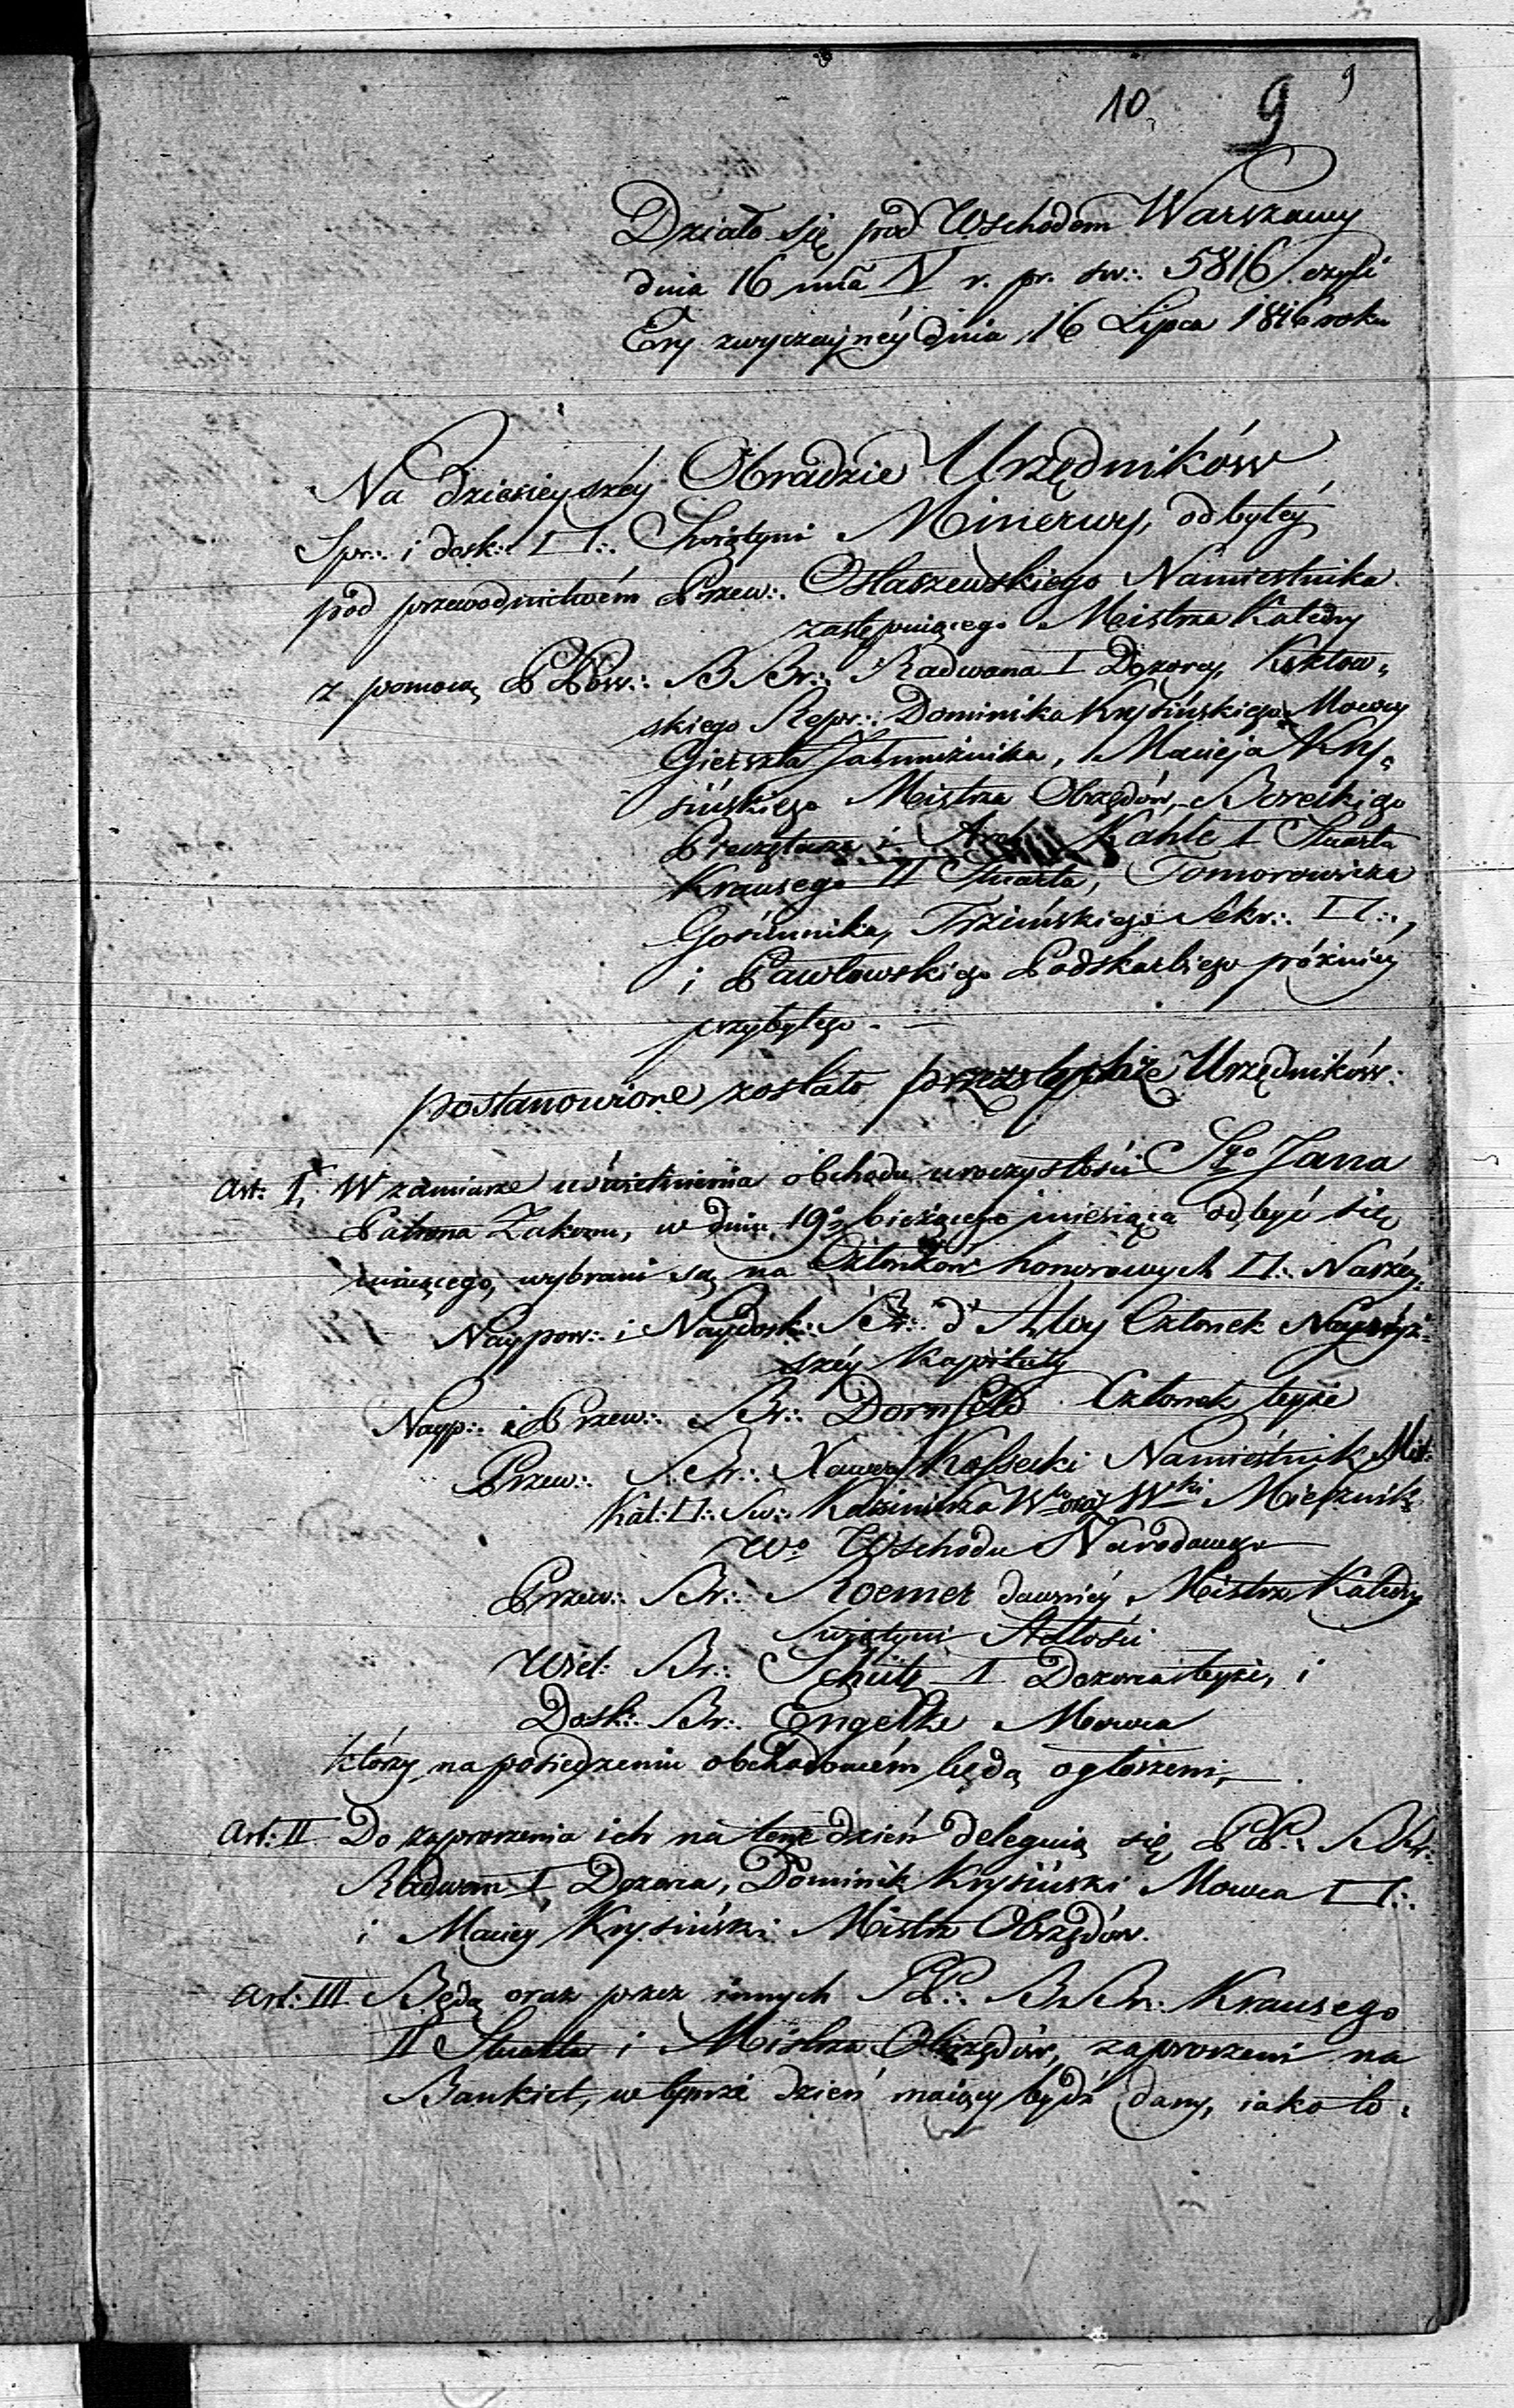 10 9 9
Działo się pod Wschodem Warszawy
dnia 16 mca V r. pr. św.: 5816 czyli
Ery zwyczajnéy dnia 16 Lipca 1816 roku
Na dzisieyszéy Obradzie Urzędników
Spr.: i dosk.: □.: Świątyni Minerwy, odbytéy
pod przewodnictwém Przew.: Osłaszewskiego Namiestnika
zastępuiącego Meistra Katedry
z pomocą PPow.: BBr.: Radwana I Dozorcy,
skiego Repr.: Dominika Krysińskiego Mowcy
Jałmużnika, Macieja Kry„
sińskiego Meistra Obrzędów, Boreckiego
Pieczętarza i Arch Kahle I Stuarta
Krausego II Stuarta, Tomorowicza
Gościnnika, Trzcińskiego Sekr.: □.:,
i Pawłowskiego Podskarbiego późniéy
przybyłego.
postanowione zostało przez tychże Urzędników:
Art: I. W zamiarze uświetnienia obchodu uroczystości Sgo Jana
Patrona Zakonu, w dniu 19o bieżącego miesiąca odbyć się
maiącego, wybrani są na Członków honorowych □.: Naszéy.
Naypow.: i Naydosk.: Br.: d'Alvy Członek Naywyż„
széy Kapituły
Nayp.: i Przew.: Br.: Dornfeld Członek teyże
Przew.: Br.: Xawery Kossecki Namiestnik Mist:
Kat: □: Św: Kazimierza Miecznik
Wo Wschodu Narodowego
Przew.: Br.: Roemer dawniéy Meistrz Katedry
Świątyni Stałości
Wiel: Br.: Schütz I Dozorca teyże, i
Dosk.: Br.: Engelke Mowca
którzy na posiedzeniu obchodowém będą ogłoszeni,
Art: II Do zaproszenia ich na tenże dzień deleguią się PP.: BBr.:
Radwan I Dozorca, Dominik Krysiński Mowca □.:
i Maciéy Krysiński Mistrz Obrzędów.
Art: III Będą oraz przez innych PP.: BBr: Krausego
II Stuarta i Mistrza Obrzędów, zaproszeni na
Bankiet, w tymże dzień maiący bydź dany, iako to: